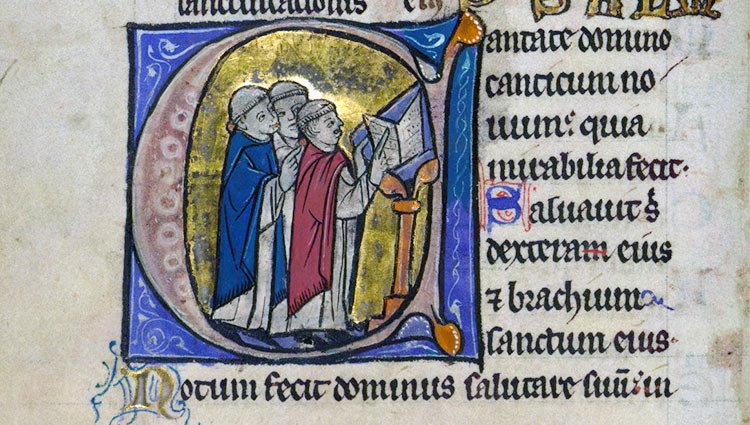 sanctificationis
Cantate domino
canticum no
uum: quia
mirabilia fecit.
Saluauit s
dexteram eius
⁊ brachium
sanctum eius.
Notum fecit dominus salutare suū in